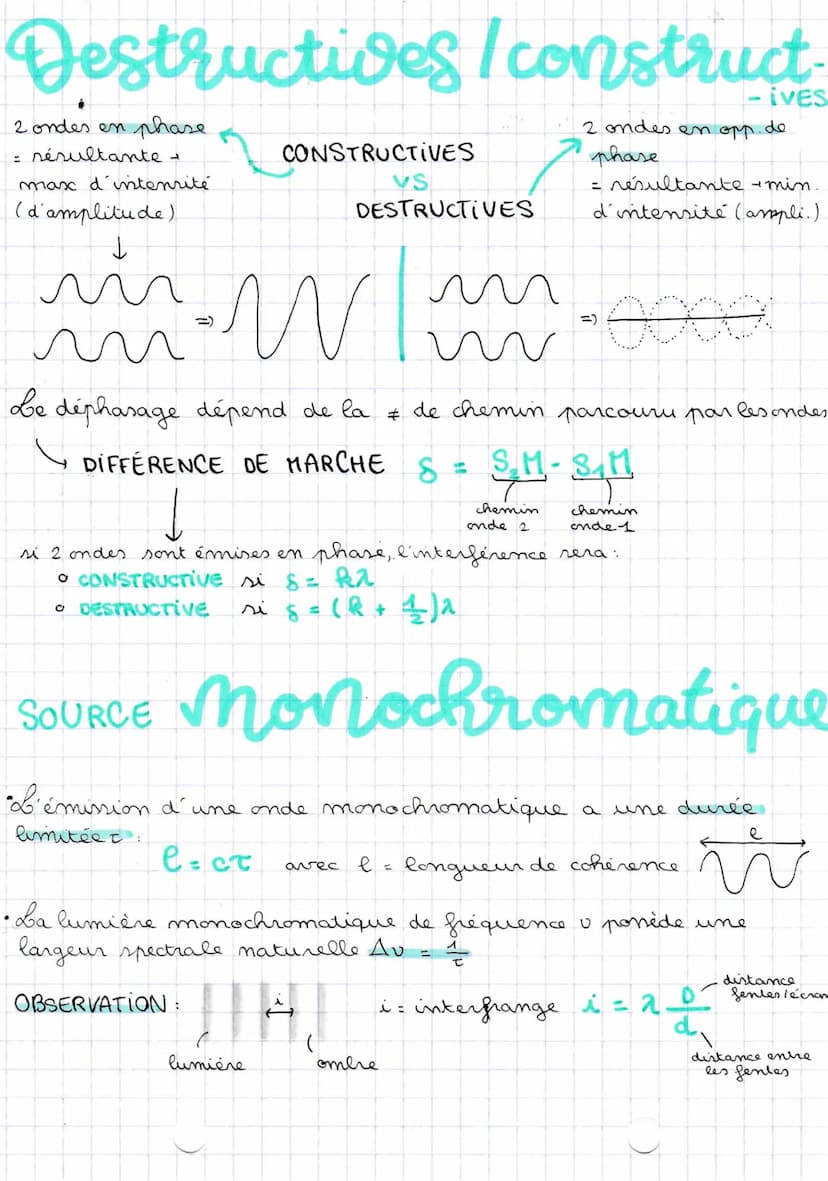 Destructives / construct-
- ives
2 ondes en phase
= résultante →
max d'intensité
(d'amplitude)
CONSTRUCTIVES
VS
DESTRUCTIVES
2 ondes en opp. de
phase
= résultante → min.
d'intensité (ampli.)
=>
=>
Le déphasage dépend de la ≠ de chemin parcouru par les ondes
↳ DIFFÉRENCE DE MARCHE δ = S₂M - S₁M
chemin onde 2
chemin onde 1
si 2 ondes sont émises en phase, l'interférence sera :
o CONSTRUCTIVE si δ = kλ
o DESTRUCTIVE si δ = (k + 1/2)λ
SOURCE monochromatique
• L'émission d'une onde monochromatique a une durée
limitée τ :
l
l = cτ avec l = longueur de cohérence
• La lumière monochromatique de fréquence υ possède une
largeur spectrale naturelle Δυ = 1/τ
OBSERVATION :
i
i = interfrange i = λ D/d
distance
fentes/écran
lumière
ombre
distance entre
les fentes